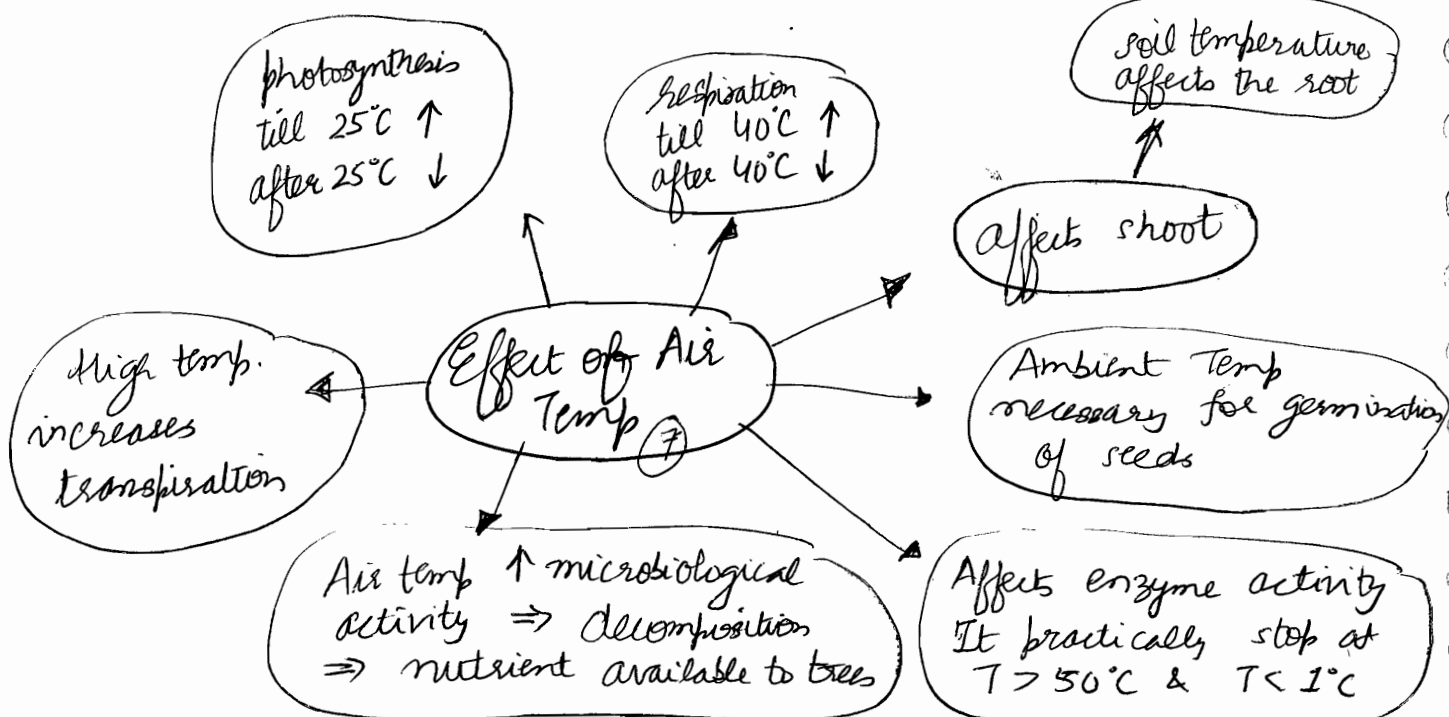 photosynthesis
till 25°C ↑
after 25°C ↓
respiration
till 40°C ↑
after 40°C ↓
soil temperature
affects the root
affects shoot
Effect of Air
Temp 7
High temp.
increases
transpiration
Ambient Temp
necessary for germination
of seeds
Air temp ↑ microbiological
activity ⇒ decomposition
⇒ nutrient available to trees
Affects enzyme activity
It practically stop at
T > 50°C & T < 1°C